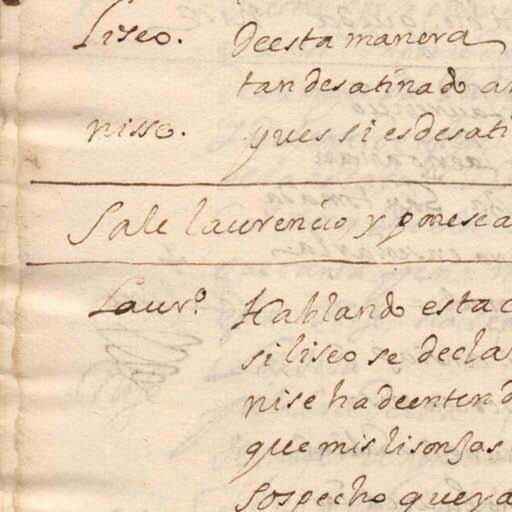 Liseo. Deesta manera
tan desatinado a
nisse. pues si es desati
Sale laurencio y ponesea
Laurº Hablando esta c
si liseo se decla
nise ha de entend
que mis lisonjas
sospecho que ya